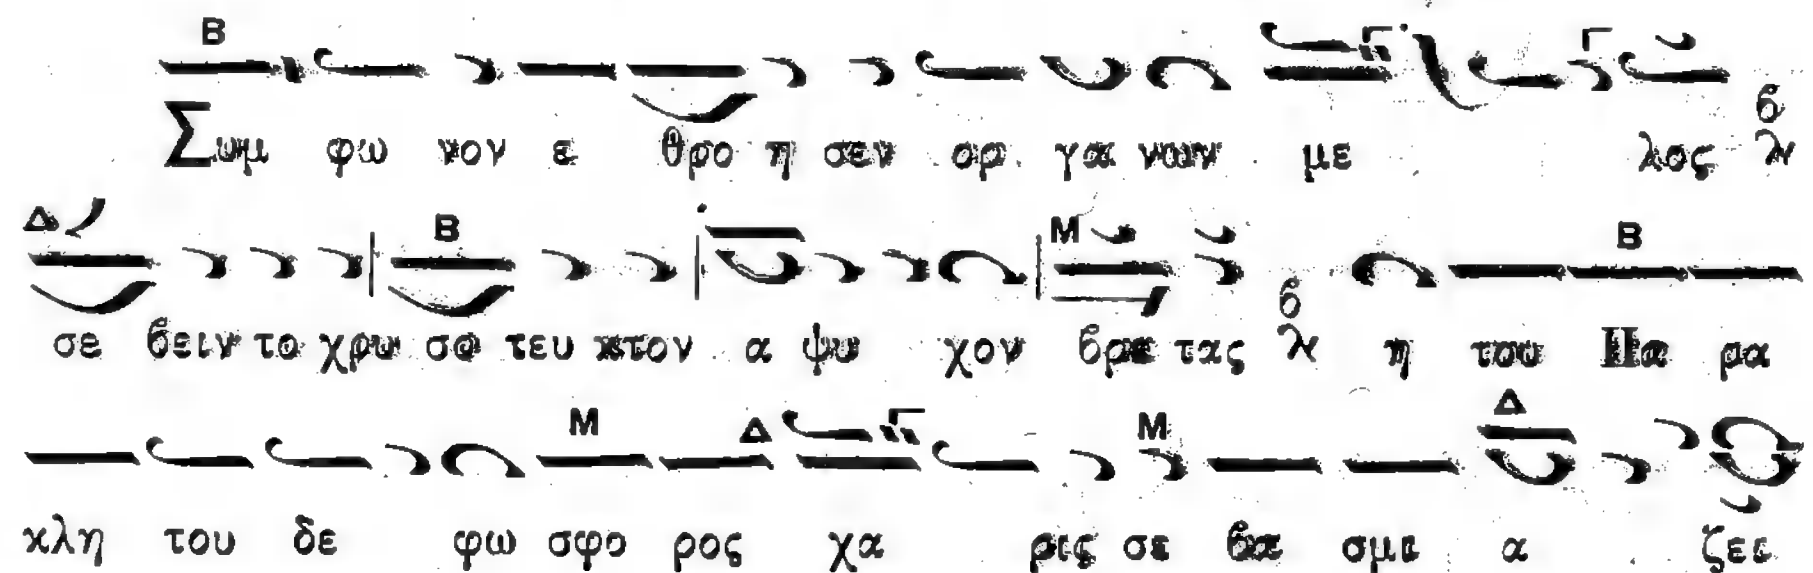 Β
Συμ φω νον ε θρο η σεν ορ γα νων με λος
Δ Β Μ Β
σε βειν το χρυ σο τευ κτον α ψυ χον βρε τας η του Πα ρα
Μ Δ Μ Δ
κλη του δε φω σφο ρος χα ρις σε βα σμι α ζει